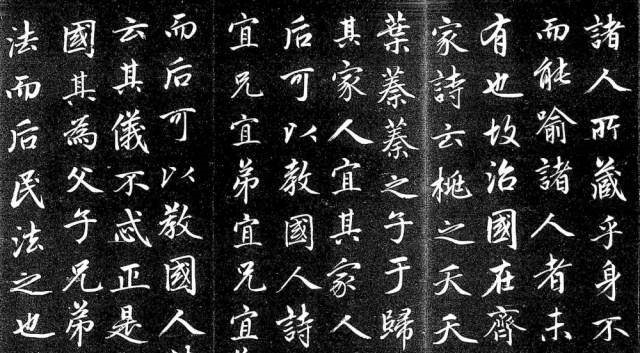 諸人所藏乎身不
而能喻諸人者未
有也故治國在齊
家詩云桃之夭夭
葉蓁蓁之子于歸
其家人宜其家人
后可以教國人詩
宜兄宜弟宜兄宜
而后可以教國人
云其儀不忒正是
國其為父子兄弟
法而后民法之也